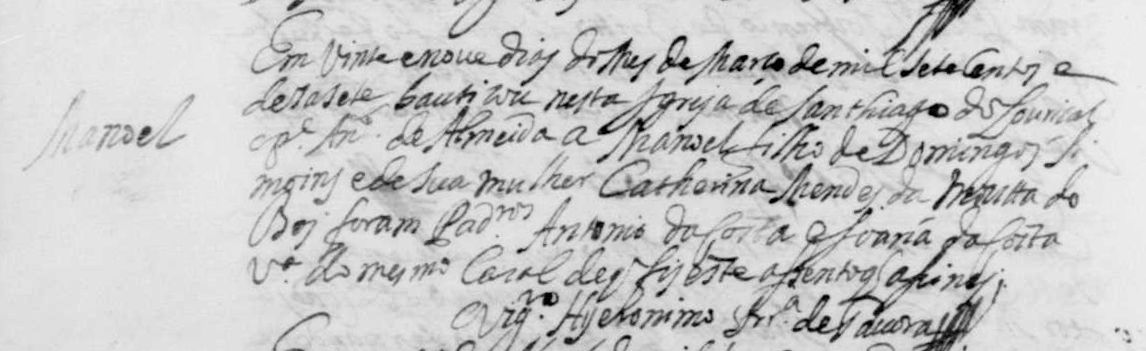 Manoel
Em Vinte e noue dias do Mes de Março de mil sete Centos e
dezasete bautizou nesta Igreja de Santhiago do Lourical
o p.e An.to de Almeida a Manoel filho de Domingos Si
moins e de sua mulher Catherina Mendes da do
Boj foram Pad.ros Antonio da Costa e Joana da Costa
V.a do mesmo Casal de q fis este assento q asinej.
Vig.ro Hyeronimo de Tauora